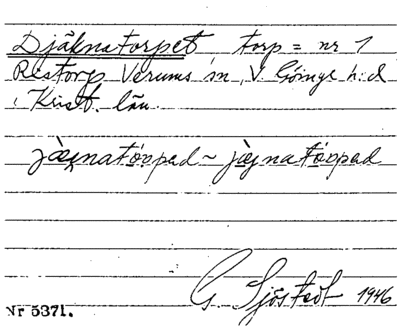 Djäknatorpet torp = nr 1
Restorp Verums sn, V. Göinge h:d
, Krist. län.
jæ̀jnatór̯pad ~ jæ̀jnatór̯pad
G. Sjöstedt 1946
Nr 5371.